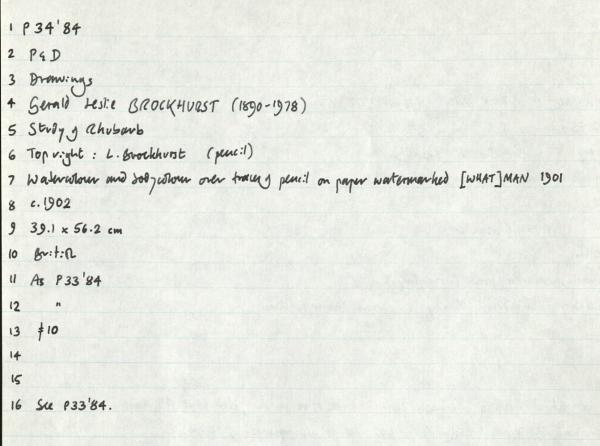 1 P 34'84
2 P & D
3 Drawings
4 Gerald Leslie BROCKHURST (1890-1978)
5 Study of Rhubarb
6 Top right : L. Brockhurst (pencil)
7 Watercolour and bodycolour over traces of pencil on paper watermarked [WHAT]MAN 1901
8 c.1902
9 39.1 x 56.2 cm
10 British
11 As P33'84
12 "
13 £10
14
15
16 See P33'84.